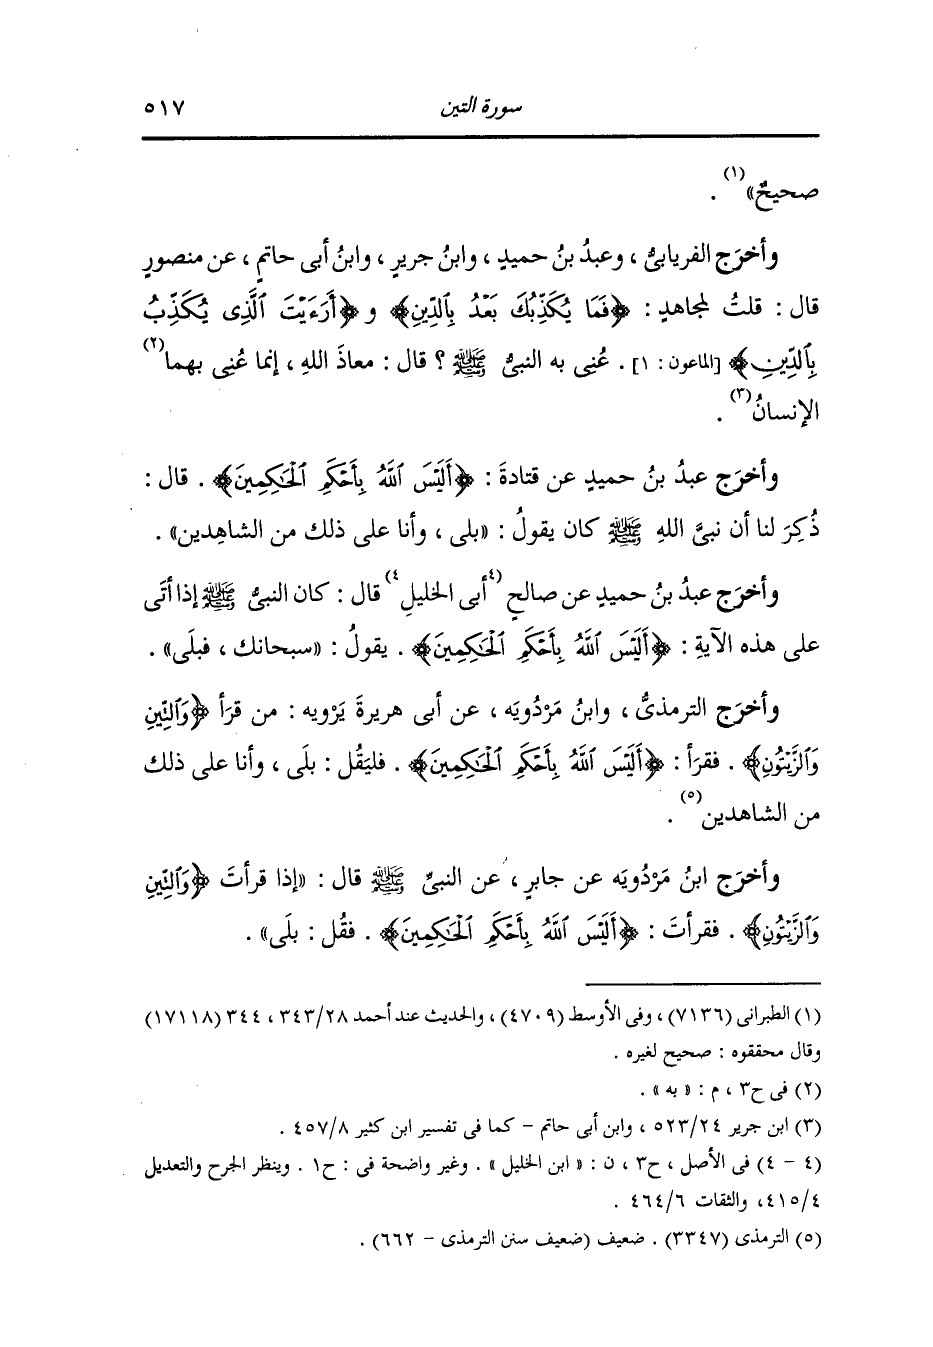 سورة التين ٥١٧
صحيحٌ»(١) .
وأخرَج الفريابىُّ ، وعبدُ بنُ حميدٍ ، وابنُ جريرٍ ، وابنُ أبى حاتمٍ ، عن منصورٍ
قال : قلتُ لمجاهدٍ : ﴿فَمَا يُكَذِّبُكَ بَعْدُ بِٱلدِّينِ﴾ و ﴿أَرَءَيْتَ ٱلَّذِى يُكَذِّبُ
بِٱلدِّينِ﴾ [الماعون : ١] . عُنِى به النبىُّ ﷺ ؟ قال : معاذَ اللهِ ، إنما عُنِى بهما(٢)
الإنسانُ(٣) .
وأخرَج عبدُ بنُ حميدٍ عن قتادةَ : ﴿أَلَيْسَ ٱللَّهُ بِأَحْكَمِ ٱلْحَٰكِمِينَ﴾ . قال :
ذُكِرَ لنا أن نبىَّ اللهِ ﷺ كان يقولُ : «بلى ، وأنا على ذلك من الشاهدين» .
وأخرَج عبدُ بنُ حميدٍ عن صالحٍ (٤أبى الخليلِ٤) قال : كان النبىُّ ﷺ إذا أتَى
على هذه الآيةِ : ﴿أَلَيْسَ ٱللَّهُ بِأَحْكَمِ ٱلْحَٰكِمِينَ﴾ . يقولُ : «سبحانك ، فبلَى» .
وأخرَج الترمذىُّ ، وابنُ مَرْدُويَه ، عن أبى هريرةَ يَرْويه : من قرَأ ﴿وَٱلتِّينِ
وَٱلزَّيْتُونِ﴾ . فقرَأ : ﴿أَلَيْسَ ٱللَّهُ بِأَحْكَمِ ٱلْحَٰكِمِينَ﴾ . فليَقُل : بلَى ، وأنا على ذلك
من الشاهدين(٥) .
وأخرَج ابنُ مَرْدُويَه عن جابرٍ ، عن النبىِّ ﷺ قال : «إذا قرأتَ ﴿وَٱلتِّينِ
وَٱلزَّيْتُونِ﴾ . فقرأتَ : ﴿أَلَيْسَ ٱللَّهُ بِأَحْكَمِ ٱلْحَٰكِمِينَ﴾ . فقُل : بلَى» .
(١) الطبرانى (٧١٣٦) ، وفى الأوسط (٤٧٠٩) ، والحديث عند أحمد ٣٤٣/٢٨ ، ٣٤٤ (١٧١١٨)
وقال محققوه : صحيح لغيره .
(٢) فى ح٣ ، م : « به » .
(٣) ابن جرير ٥٢٣/٢٤ ، وابن أبى حاتم - كما فى تفسير ابن كثير ٤٥٧/٨ .
(٤ - ٤) فى الأصل ، ح٣ ، ن : « ابن الخليل » . وغير واضحة فى : ح١ . وينظر الجرح والتعديل
٤١٥/٤، والثقات ٤٦٤/٦ .
(٥) الترمذى (٣٣٤٧) . ضعيف (ضعيف سنن الترمذى - ٦٦٢) .